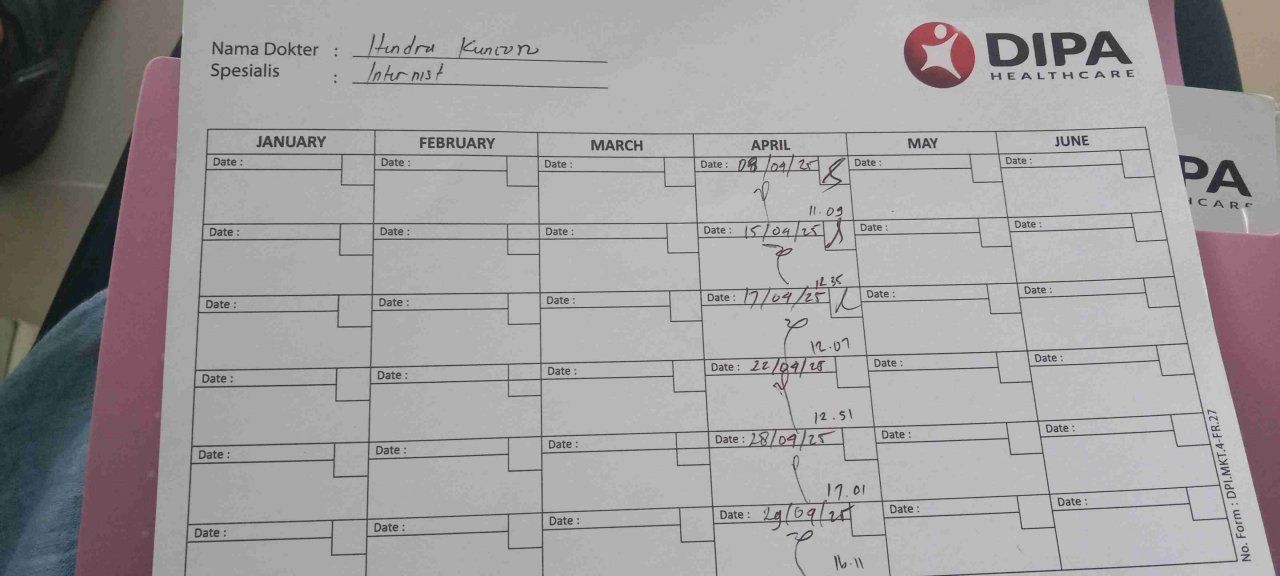 Nama Dokter : Hendra Kuncoro
Spesialis : Internist
DIPA
HEALTHCARE
JANUARY FEBRUARY MARCH APRIL MAY JUNE
Date : Date : Date : Date : 08/04/25 Date : Date :
11.09
Date : Date : Date : Date : 15/04/25 Date : Date :
12.35
Date : Date : Date : Date : 17/04/25 Date : Date :
12.07
Date : Date : Date : Date : 22/04/25 Date : Date :
12.51
Date : Date : Date : Date : 28/04/25 Date : Date :
17.01
Date : Date : Date : Date : 29/04/25 Date : Date :
16.11
No. Form : DPI.MKT.4-FR.27
PA
HCARE